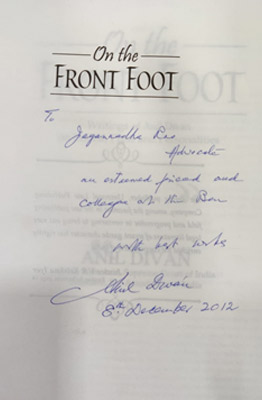 On the
FRONT FOOT
To
Jagannadha Rao
Advocate
an esteemed friend and
colleague at the Bar
with best wishes
Anil Divan
8th December 2012
ANIL DIVAN